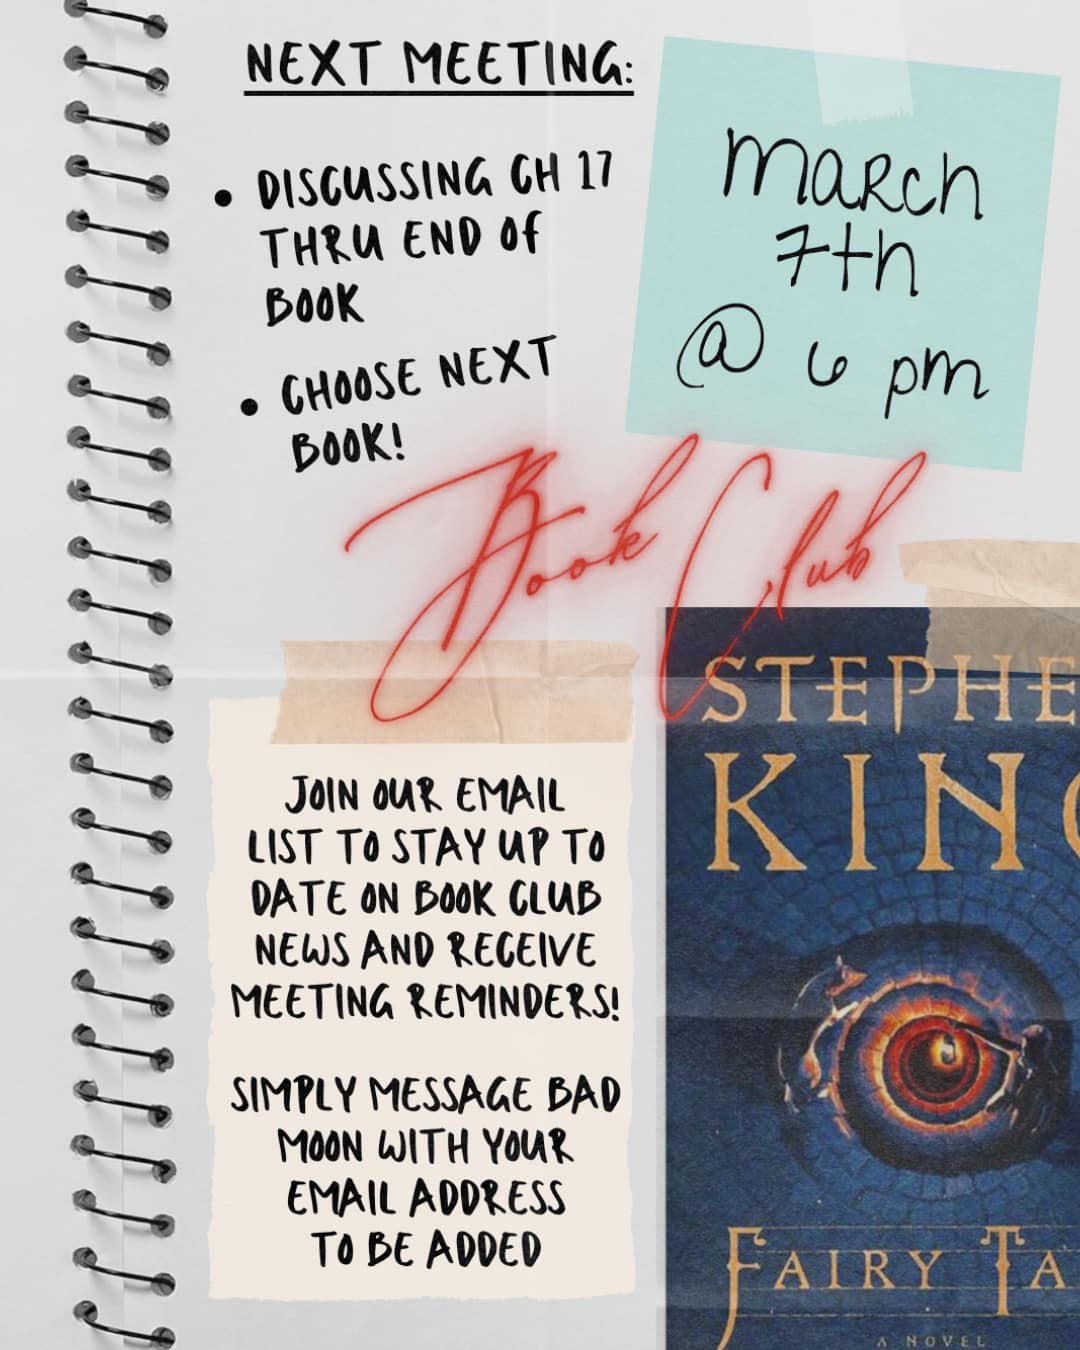 NEXT MEETING:
• DISCUSSING CH 17
THRU END OF
BOOK
• CHOOSE NEXT
BOOK!
March
7th
@ 6 pm
Book Club
JOIN OUR EMAIL
LIST TO STAY UP TO
DATE ON BOOK CLUB
NEWS AND RECEIVE
MEETING REMINDERS!
SIMPLY MESSAGE BAD
MOON WITH YOUR
EMAIL ADDRESS
TO BE ADDED
STEPHE
KING
FAIRY TA
A NOVEL